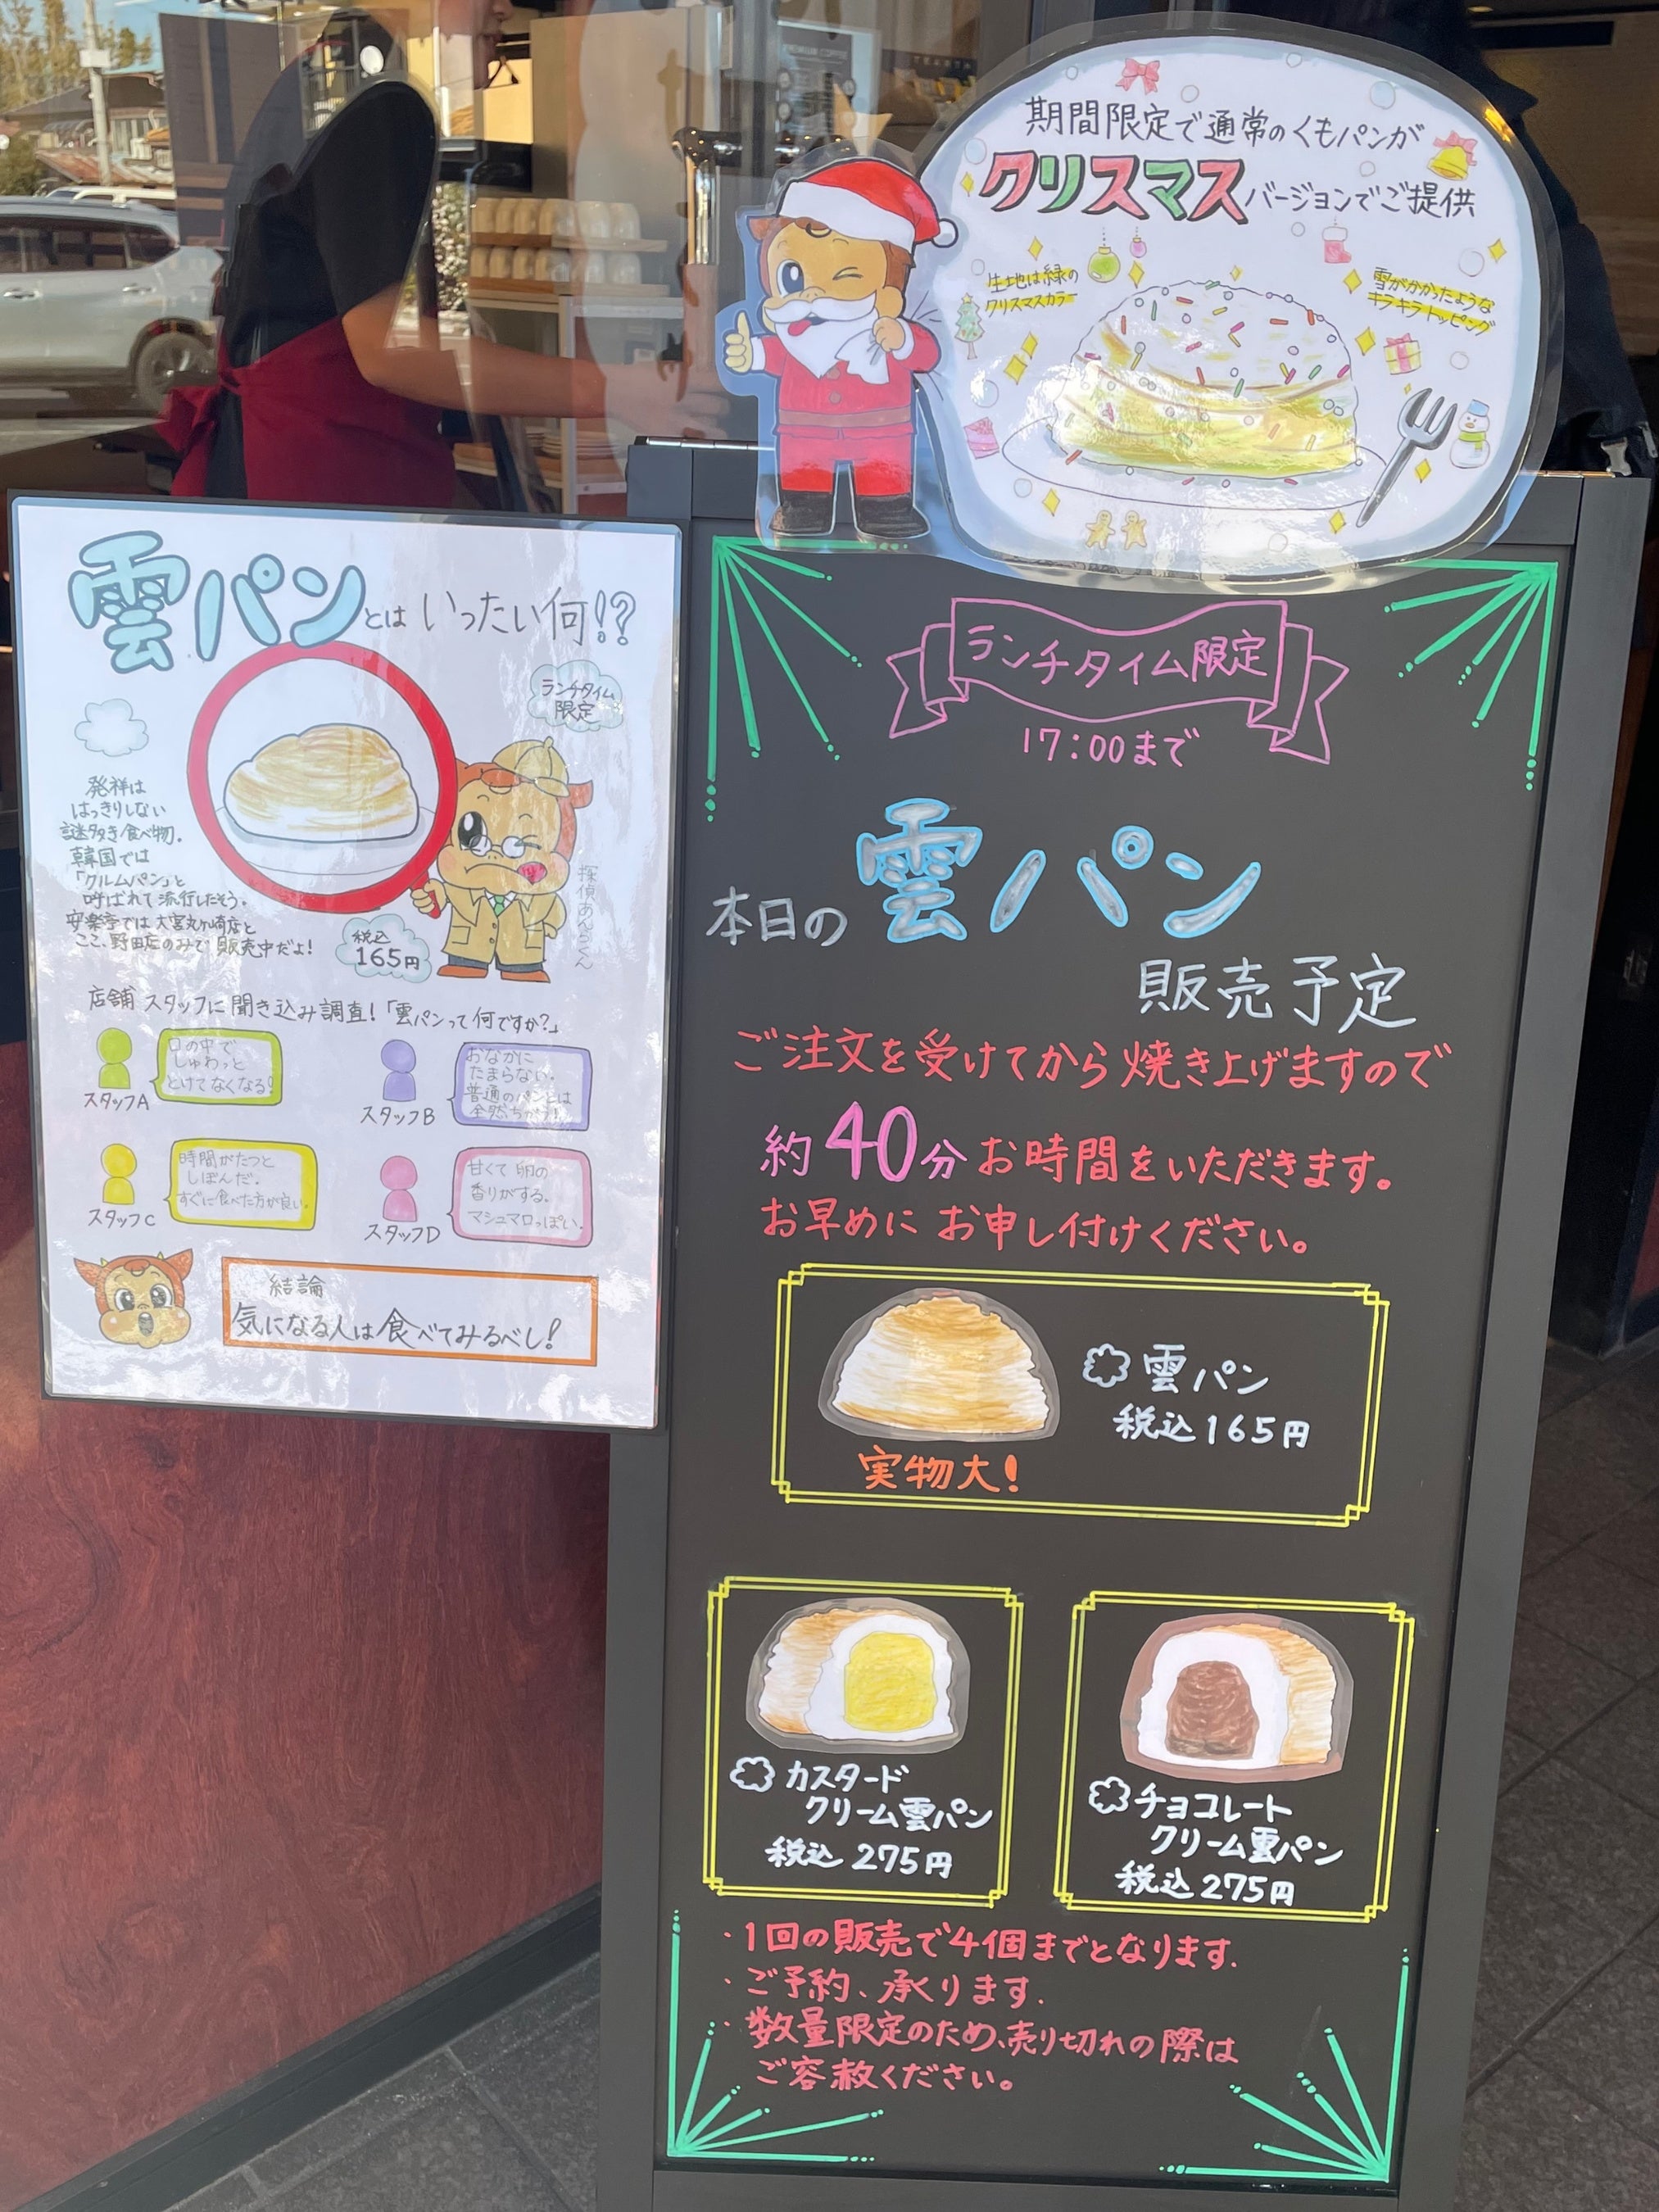 期間限定で通常のくもパンが
クリスマスバージョンでご提供
生地は緑の
クリスマスカラー
雪がかかったような
キラキラトッピング
雲パンとはいったい何!?
ランチタイム
限定
発祥は
はっきりしない
謎多き食べ物。
韓国では
「クルムパン」と
呼ばれて流行したそう。
安楽亭では大宮丸ヶ崎店と
ここ、野田店のみで販売中だよ!
税込
165円
探偵あんらくん
店舗スタッフに聞き込み調査!「雲パンって何ですか?」
口の中で
しゅわっと
とけてなくなる!
スタッフA
おなかに
たまらない。
普通のパンとは
全然ちがう!
スタッフB
時間がたつと
しぼんだ。
すぐに食べた方が良い。
スタッフC
甘くて卵の
香りがする。
マシュマロっぽい。
スタッフD
結論
気になる人は食べてみるべし!
ランチタイム限定
17:00まで
本日の雲パン
販売予定
ご注文を受けてから焼き上げますので
約40分お時間をいただきます。
お早めにお申し付けください。
雲パン
税込165円
実物大!
カスタード
クリーム雲パン
税込275円
チョコレート
クリーム雲パン
税込275円
・1回の販売で4個までとなります.
・ご予約、承ります.
・数量限定のため、売り切れの際は
ご容赦ください。